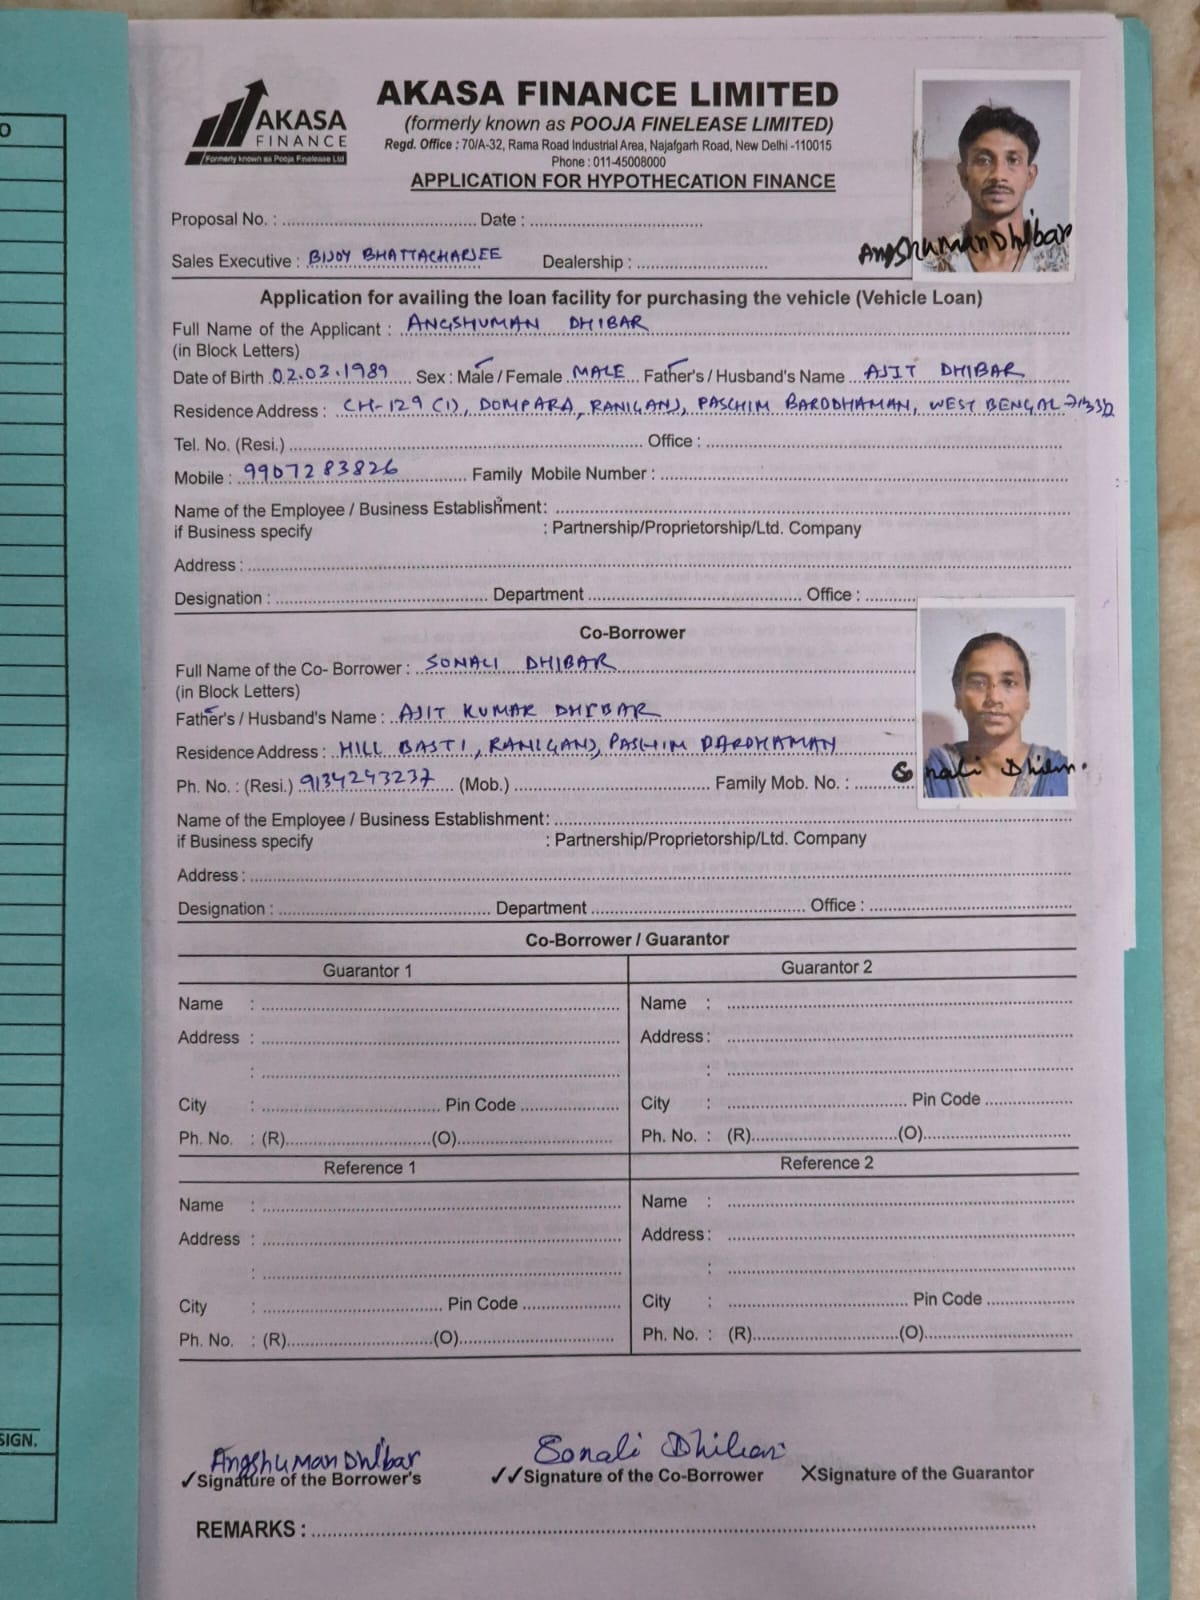 O
AKASA
FINANCE
Formerly known as Pooja Finelease Ltd
AKASA FINANCE LIMITED
(formerly known as POOJA FINELEASE LIMITED)
Regd. Office : 70/A-32, Rama Road Industrial Area, Najafgarh Road, New Delhi -110015
Phone : 011-45008000
APPLICATION FOR HYPOTHECATION FINANCE
Proposal No. : Date :
Angshuman Dhibar
Sales Executive : BIJOY BHATTACHARJEE Dealership :
Application for availing the loan facility for purchasing the vehicle (Vehicle Loan)
Full Name of the Applicant : ANGSHUMAN DHIBAR
(in Block Letters)
Date of Birth 02.03.1989 Sex : Male / Female MALE Father's / Husband's Name AJIT DHIBAR
Residence Address : CH-129 (1), DOMPARA, RANIGANJ, PASCHIM BARDDHAMAN, WEST BENGAL
Tel. No. (Resi.) Office :
Mobile : 9907283826 Family Mobile Number :
Name of the Employee / Business Establishment:
if Business specify : Partnership/Proprietorship/Ltd. Company
Address :
Designation : Department Office :
Co-Borrower
Full Name of the Co- Borrower : SONALI DHIBAR
(in Block Letters)
Father's / Husband's Name : AJIT KUMAR DHIBAR
Residence Address : HILL BASTI, RANIGANJ, PASHIM BARDHAMAN
Sonali Dhibar
Ph. No. : (Resi.) 9134243237 (Mob.) Family Mob. No. :
Name of the Employee / Business Establishment:
if Business specify : Partnership/Proprietorship/Ltd. Company
Address :
Designation : Department Office :
Co-Borrower / Guarantor
Guarantor 1 Guarantor 2
Name : Name :
Address : Address :
: :
City : Pin Code City : Pin Code
Ph. No. : (R) (O) Ph. No. : (R) (O)
Reference 1 Reference 2
Name : Name :
Address : Address :
: :
City : Pin Code City : Pin Code
Ph. No. : (R) (O) Ph. No. : (R) (O)
SIGN.
Angshuman Dhibar Sonali Dhibar
✓Signature of the Borrower's ✓✓Signature of the Co-Borrower XSignature of the Guarantor
REMARKS :